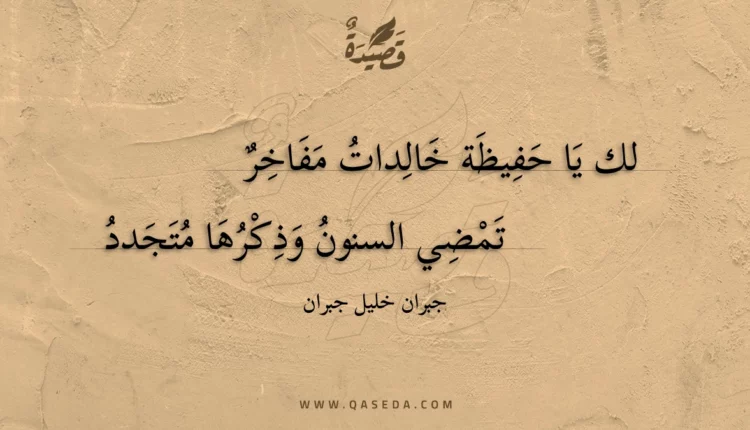 قَصِيدَةٌ
لك يَا حَفِيظَة خَالِداتُ مَفَاخِرٌ
تَمْضِي السنونُ وَذِكْرُهَا مُتَجَددُ
جبران خليل جبران
WWW.QASEDA.COM